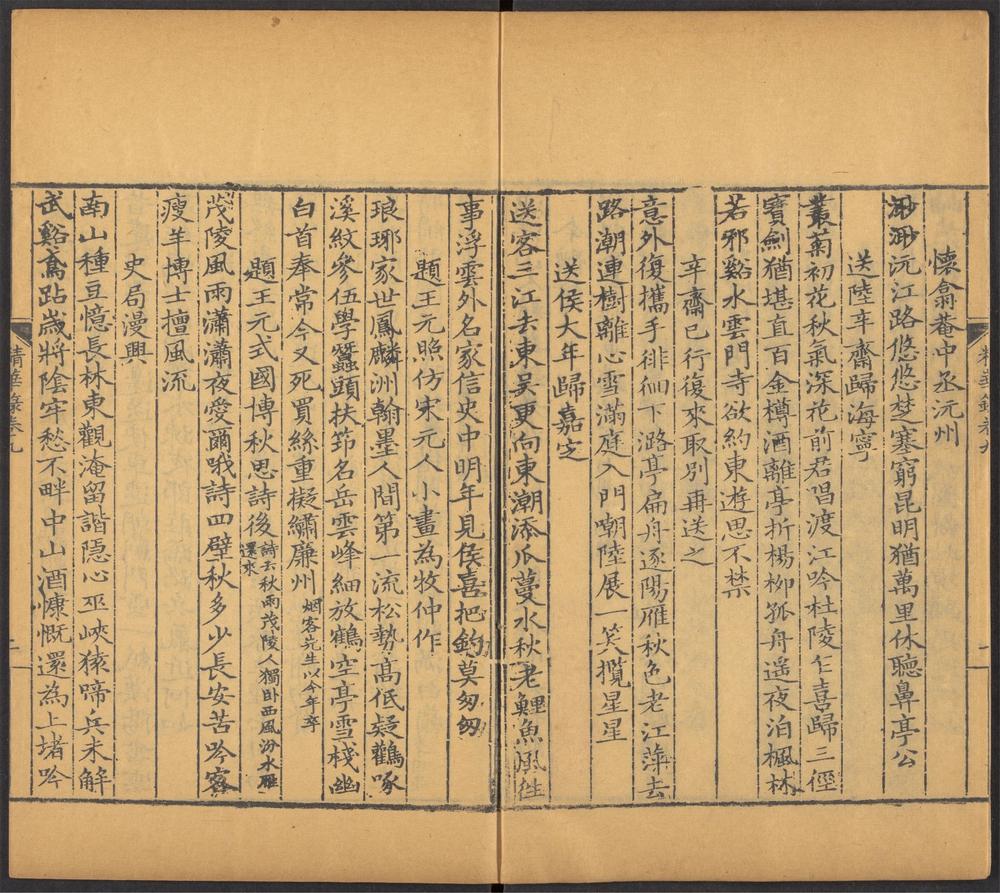 懷翕菴中丞沅州
渺渺沅江路悠悠楚塞窮昆明猶萬里休聽鼻亭公
送陸辛齋歸海寧
叢菊初花秋氣深花前君唱渡江吟杜陵乍喜歸三徑
寶劍猶堪直百金樽酒離亭折楊柳孤舟遥夜泊楓林
若邪谿水雲門寺欲約東遊思不禁
辛齋已行復來取別再送之
意外復攜手徘徊下潞亭扁舟逐陽雁秋色老江萍去
路潮連樹離心雪滿庭入門嘲陸展一笑攬星星
送侯大年歸嘉定
送客三江去東吴更向東潮添瓜蔓水秋老鯉魚風往
事浮雲外名家信史中明年見侯喜把釣莫匆匆
題王元照仿宋元人小畫為牧仲作
琅琊家世鳳麟洲翰墨人間第一流松勢高低疑鸛啄
溪紋參伍學蠶頭扶笻名岳雲峰細放鶴空亭雪棧幽
白首奉常今又死買絲重擬繡廉州 烟客先生以今年卒
題王元式國博秋思詩後 詩云秋雨茂陵人獨卧西風汾水雁還來
茂陵風雨瀟瀟夜愛爾哦詩四壁秋多少長安苦吟客
瘦羊博士擅風流
史局漫興
南山種豆憶長林東觀淹留諧隱心巫峽猿啼兵未解
武谿鳶跕歲將陰牢愁不畔中山酒慷慨還為上堵吟
精華錄卷九
一
精華錄卷九
二